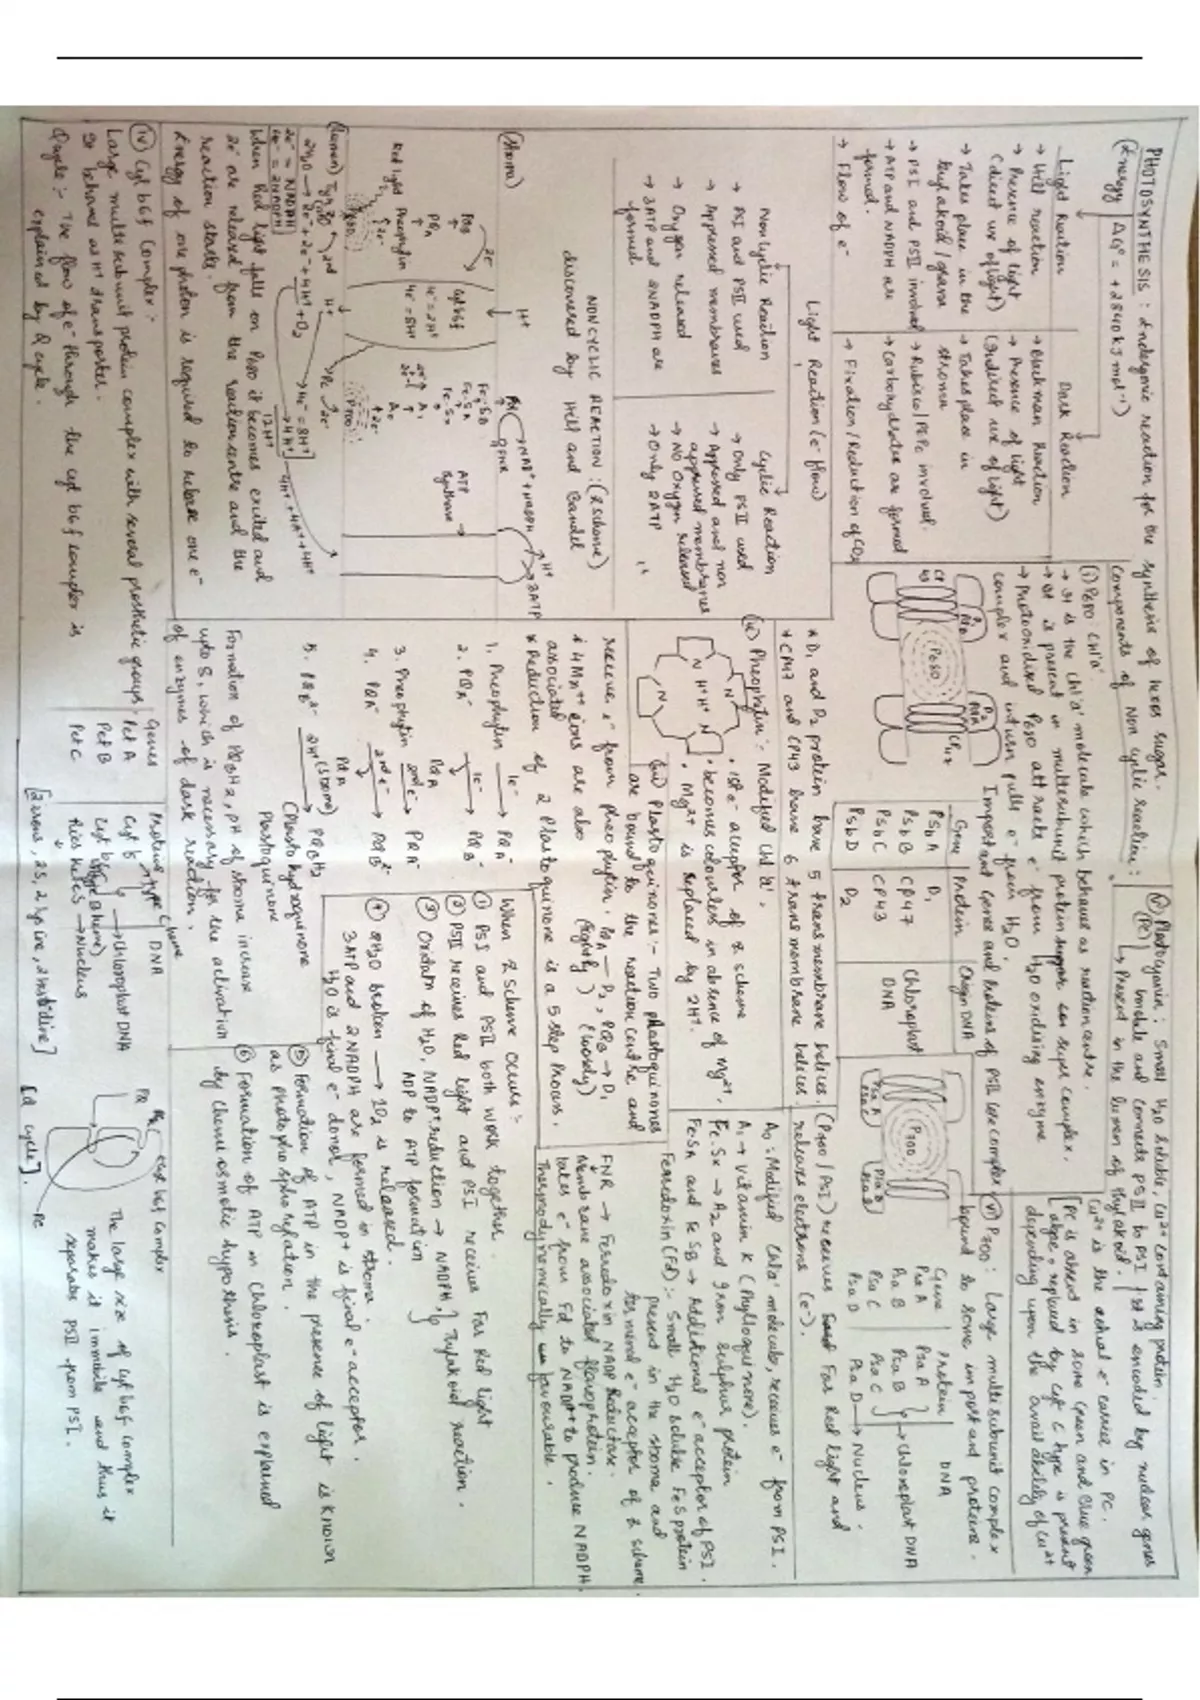 PHOTOSYNTHESIS : Endergonic reaction for the synthesis of hexose sugar.
(Energy) ΔG° = +2840 kJ mol⁻¹)
Light Reaction
→ Hill reaction
→ Presence of light
(direct use of light)
→ Takes place in the
thylakoid / grana
→ PSI and PSII involved
→ ATP and NADPH are
formed.
→ Flow of e⁻
Dark Reaction
→ Blackman Reaction
→ Presence of light
(Indirect use of light)
→ Takes place in
stroma
→ Rubisco / PEPc involved.
→ Carbohydrates are formed
→ Fixation / Reduction of CO₂
Light Reaction (e⁻ flow)
Non Cyclic Reaction
→ PSI and PSII used
→ Appressed membranes
→ Oxygen released
→ 3ATP and 2NADPH are
formed
Cyclic Reaction
→ Only PSII used
→ Appressed and non
appressed membranes
→ NO Oxygen released
→ Only 2ATP
NON CYCLIC REACTION : (Z scheme)
discovered by Hill and Bendel
(Stroma)
H⁺
2e⁻
PQB
PQA
Pheophytin
2e⁻
Red light
P680
Cyt b6f
4e⁻ = 8H⁺
PC
2e⁻
P700
A₁
Fe-Sx
Fe-SA
Fe-SB
Fd
FNR
NAD⁺ + NADPH
ATP
Synthase
H⁺
3ATP
(Lumen)
2H₂O → 2e⁻ + 2e⁻ + 4H⁺ + O₂
2e⁻ = NADPH
4e⁻ = 2NADPH
4e⁻ = 8H⁺
→ 4H⁺
12H⁺
4H⁺ + 4H⁺ + 4H⁺
When Red light falls on P680 it becomes excited and
2e⁻ are released from the reaction centre and the
reaction starts.
Energy of one photon is required to release one e⁻
(iv) Cyt b6f Complex :-
Large multisubunit protein complex with several prosthetic groups.
It behaves as H⁺ transporter.
Q cycle :- The flow of e⁻ through the cyt b6f complex is
explained by Q cycle.
Components of Non cyclic Reaction :
(i) P680 : Chl 'a'
→ It is the chl 'a' molecule which behaves as reaction centre.
→ It is present in multisubunit protein super complex.
→ Photooxidised P680 attracts e⁻ from H₂O oxidising enzyme
complex and inturn pulls e⁻ from H₂O.
P680
CP 43
D₁
D₂
CP47
Important Genes and Proteins of PSII core complex
Gene Protein Origin DNA
Psb A D₁
Psb B CP47 Chloroplast
Psb C CP43 DNA
Psb D D₂
* D₁ and D₂ protein have 5 transmembrane helices.
* CP47 and CP43 have 6 transmembrane helices
(ii) Pheophytin :- Modified Chl 'a'.
• 1st e⁻ acceptor of Z scheme
• becomes colourless in absence of Mg²⁺,
• Mg²⁺ is replaced by 2H⁺.
N
N
H⁺ H⁺
N
N
(iii) Plastoquinones :- Two plastoquinones
are bound to the reaction centre and
receive e⁻ from pheophytin. PQA — D₂, PQB → D₁
(tightly) (loosely)
* 4Mn⁺⁺ ions are also
associated
* Reduction of 2 Plastoquinone is a 5 step process.
1. Pheophytin 1e⁻ → PQA⁻
2. PQA⁻ 1e⁻ → PQB⁻
PQA
3. Pheophytin 2nd e⁻ → PQA⁻
4. PQA⁻ 2nd e⁻ → PQB²⁻
PQA
5. PQB²⁻ 2H⁺ (Stroma) → PQBH₂
(Plastohydroquinone
Plastoquinone
Formation of PQBH₂, pH of stroma increase
upto 8, which is necessary for the activation
of enzymes of dark reaction.
Genes Proteins DNA
Pet A Cyt f
Pet B Cyt b6 → Chloroplast DNA
Pet C → Nucleus
When Z Scheme occurs :-
① PSI and PSII both work together.
② PSII receives Red light and PSI receives Far Red light
③ Oxidation of H₂O, NADP⁺ reduction → NADPH,
ADP to ATP formation
} Thylakoid reaction.
④ 2H₂O broken → 1O₂ is released.
3ATP and 2NADPH are formed in stroma
H₂O is final e⁻ donor, NADP⁺ is final e⁻ acceptor.
⑤ Formation of ATP in the presence of light is known
as photophosphorylation.
⑥ Formation of ATP in Chloroplast is explained
by Chemiosmotic hypothesis.
PQ
cyt b6f complex
PC
[Q cycle].
The large size of cyt b6f complex
makes it immobile and thus it
separates PSII from PSI.
(v) Plastocyanin : Small H₂O soluble, Cu²⁺ containing protein.
(PC) mobile and connects PSII to PSI. It is encoded by nuclear genes
→ Present in the lumen of thylakoid.
Cu²⁺ is the actual e⁻ carrier in PC.
[PC is absent in some green and blue green
algae & replaced by Cyt C type is present
depending upon the availability of Cu²⁺
(vi) P700 : Large multisubunit complex
bound to some important proteins.
Gene Protein DNA
Psa A Psa A
Psa B Psa B } → Chloroplast DNA
Psa C Psa C
Psa D Psa D → Nucleus.
P700
Psa A
Psa B
(P700 / PSI) receives Far Red light and
releases electrons (e⁻).
A₀ : Modified Chl a molecule, receives e⁻ from PSI.
A₁ → Vitamin K (Phylloquinone).
Fe-Sx → A₂ and Iron Sulphur protein
FeSA and FeSB → Additional e⁻ acceptor of PSI.
Ferredoxin (Fd) :- Small H₂O soluble FeS protein
present in the stroma and
terminal e⁻ acceptor of Z scheme.
FNR → Ferredoxin NADP Reductase.
Membrane associated flavoprotein.
takes e⁻ from Fd to NADP⁺ to produce NADPH.
Thermodynamically favourable.